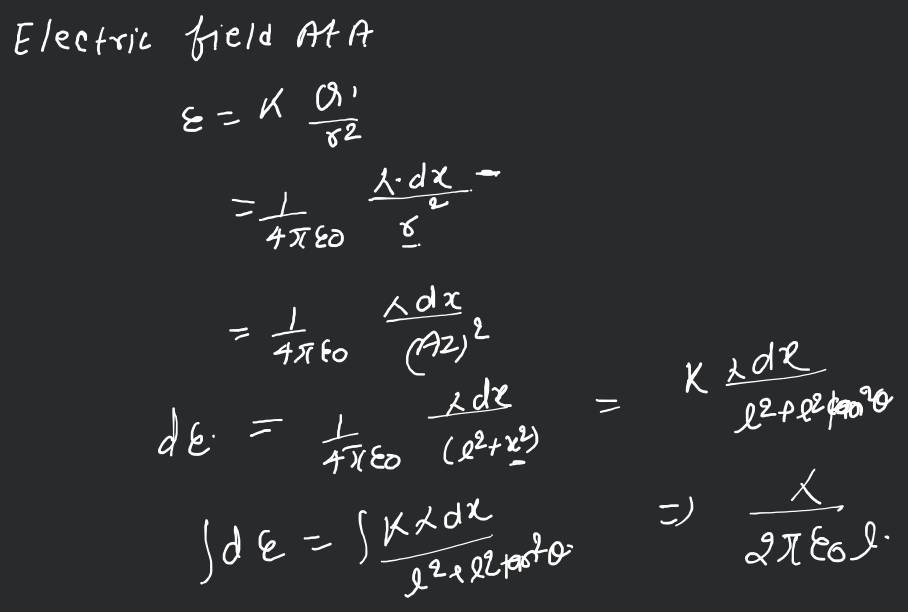 Electric field At A
ε = K Q1/r2
= 1/4πε0 λ.dx/r2
= 1/4πε0 λdx/(AZ)2
dε. = 1/4πε0 λdx/(l2+x2) = K λdx/l2+l2tan2θ
∫dε = ∫Kλdx/l2+l2tan2θ => λ/2πε0l.